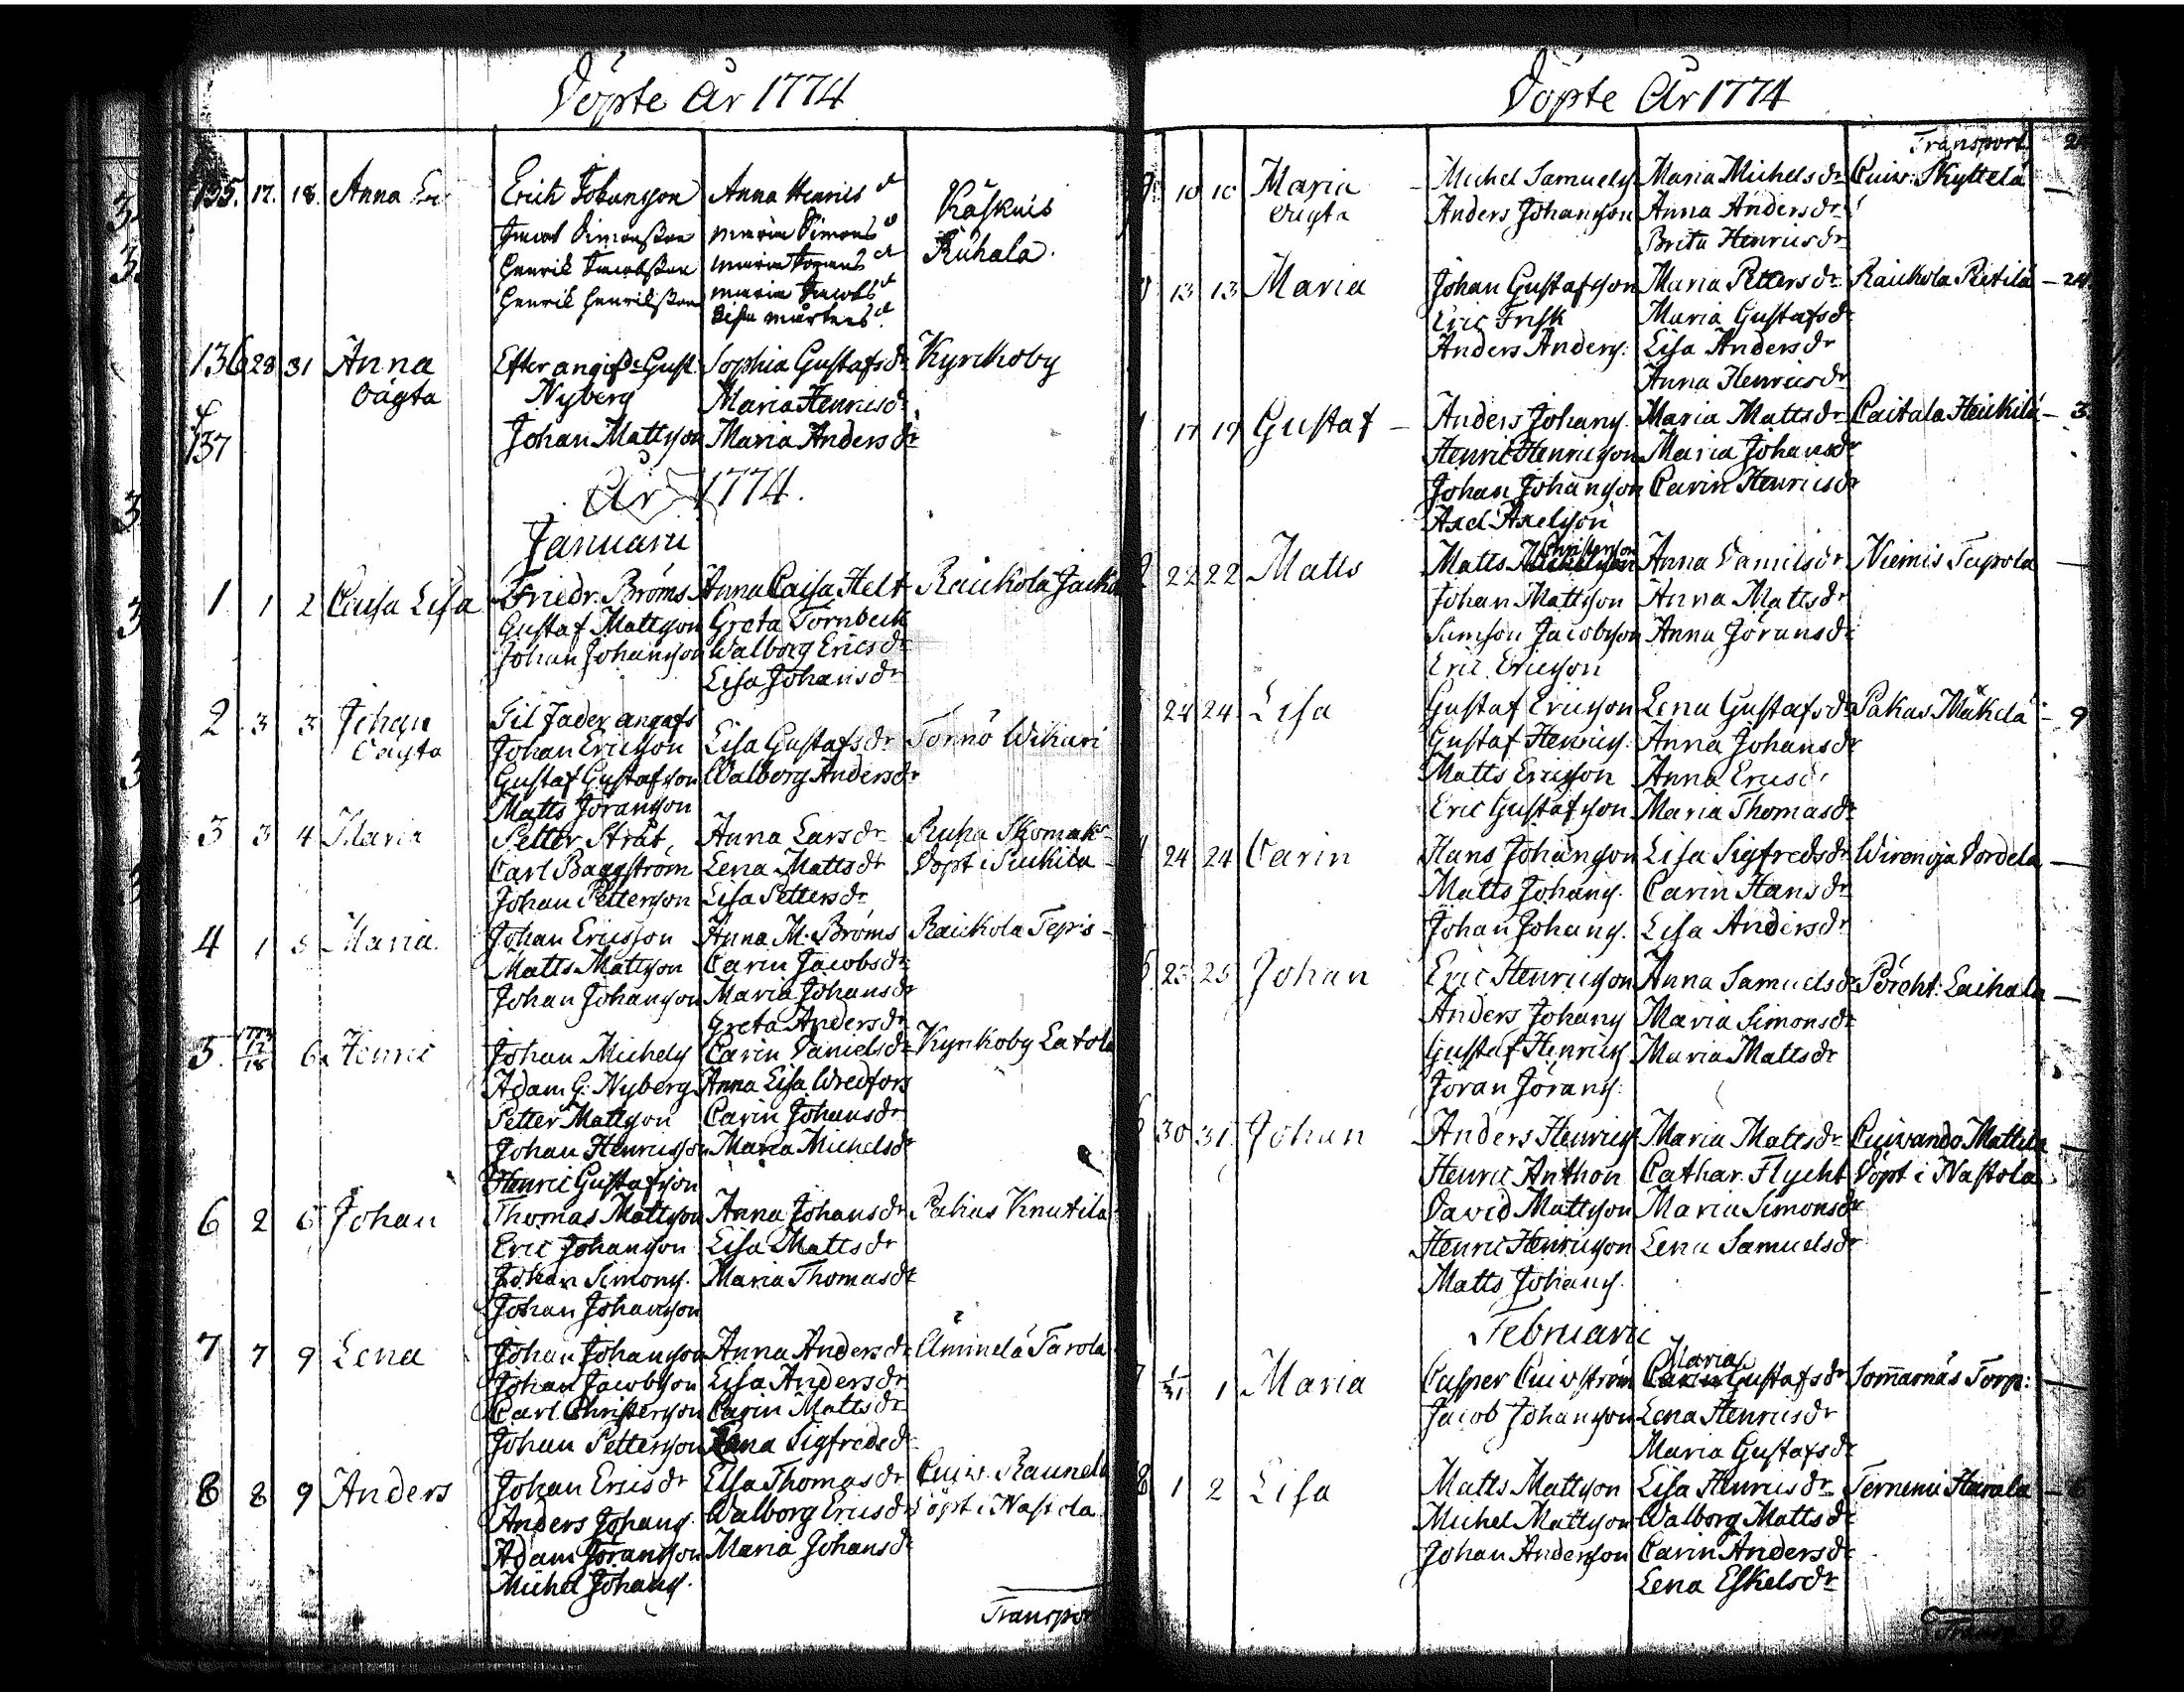 Döpte År 1774
135. 17. 18. Anna Erich Johansson Anna Henrics d Käskuis
Jacob Simonsson Maria Simons d Ruhala.
Henrik Jacobsson Maria Tomas d
Henrik Henriksson Maria Jacobs d
Lisa Mårtens d
136 28 31 Anna Efter angifvde Gust. Sophia Gustafsdr Kyrckoby
Oägta Nyberg Maria Henricsdr
137 Johan Mattsson Maria Andersdr
År 1774.
Januarii
1. 1 2 Caisa Lisa Friedr. Bröms Anna Caisa Helt Raickola
Gustaf Mattsson Greta Törnbeck
Johan Johansson Walborg Ericsdr
Lisa Johansdr
2 3 3 Johan Til fader angafs
Oägta Johan Ericsson Lisa Gustafsdr Torrö Wikari
Gustaf Gustafsson Walborg Andersdr
Matts Joransson
3 3 4 Maria Petter Stråt, Anna Larsdr
Carl Baggström Lena Mattsdr Döpt i
Johan Petterson Lisa Pettersdr
4 1 5 Maria. Johan Ericsson Anna M. Bröms Raickola Tepis
Matts Mattsson Carin Jacobsdr
Johan Johansson Maria Johansdr
Greta Andersdr
5. 1773 12/18 6. Henric Johan Michels Carin Danielsdr Kyrckoby Latola
Adam G. Nyberg Anna Lisa Wredfors
Petter Mattsson Carin Johansdr
Johan Henricsson Maria Michelsdr
Henric Gustafsson
6 2 6 Johan Thomas Mattsson Anna Johansdr Pakas Knutila
Eric Johansson Lisa Mattsdr
Johan Simons. Maria Thomasdr
Johan Johansson
7 7 9 Lena Johan Johansson Anna Andersdr Äminelä Tarola
Johan Jacobsson Lisa Andersdr
Carl Christersson Carin Mattsdr
Johan Petterson Lena Sigfredsd
8 8 9 Anders Johan Ericsdr Elsa Thomasdr Cuiw. Raunela
Anders Johans. Walborg Ericsdr Döpt i Nastola
Adam Joransson Maria Johansdr
Michel Johans.
Transport
Döpte År 1774
Transport
9. 10 10 Maria Michel Samuels Maria Michelsdr Cuiw. Skyttelä
Oägta Anders Johansson Anna Andersdr
Brita Henricsdr
13 13 Maria Johan Gustafsson Maria Pettersdr Raickola Rietilä 24
Eric Frisk Maria Gustafsdr
Anders Anders: Lisa Andersdr
Anna Henricsdr
17 19 Gustaf Anders Johans. Maria Mattsdr Caitala Heickilä 3
Henric Henricsson Maria Johansdr
Johan Johansson Carin Henricsdr
Axel Axelsson
Christerson
2 22 22 Matts Matts Michelsson Anna Danielsdr Niemis Tupola
Johan Mattsson Anna Mattsdr
Simson Jacobsson Anna Jöransdr
Eric Ericsson
24 24 Lisa Gustaf Ericsson Lena Gustafsdr Pakas Mäkelä 9
Gustaf Henrics. Anna Johansdr
Matts Ericsson Anna Ericsdr
Eric Gustafsson Maria Thomasdr
24 24 Carin Hans Johansson Lisa Sigfredsdr Wirenoja Dordela
Matts Johans. Carin Hansdr
Johan Johans. Lisa Andersdr
25 25 Johan Eric Henricsson Anna Samuelsdr Pereht. Laihala
Anders Johans Maria Simonsdr
Gustaf Henrics Maria Mattsdr
Joran Jörans:
30 31 Johan Anders Henrics Maria Mattsdr Cuivando Mattila
Henric Anthon Cathar. Flycht Döpt i Nastola
David Mattsson Maria Simonsdr
Henric Henricsson Lena Samuelsdr
Matts Johans.
Februarii
Maria
1/31 1 Maria Casper Cuivström Carin Gustafsdr Sommarnäs Torp:
Jacob Johansson Lena Henricsdr
Maria Gustafsdr
8 1 2 Lisa Matts Mattsson Lisa Henricsdr Terrieni Harala
Michel Mattsson Walborg Mattsdr
Johan Anderson Carin Andersdr
Lena Eskelsdr